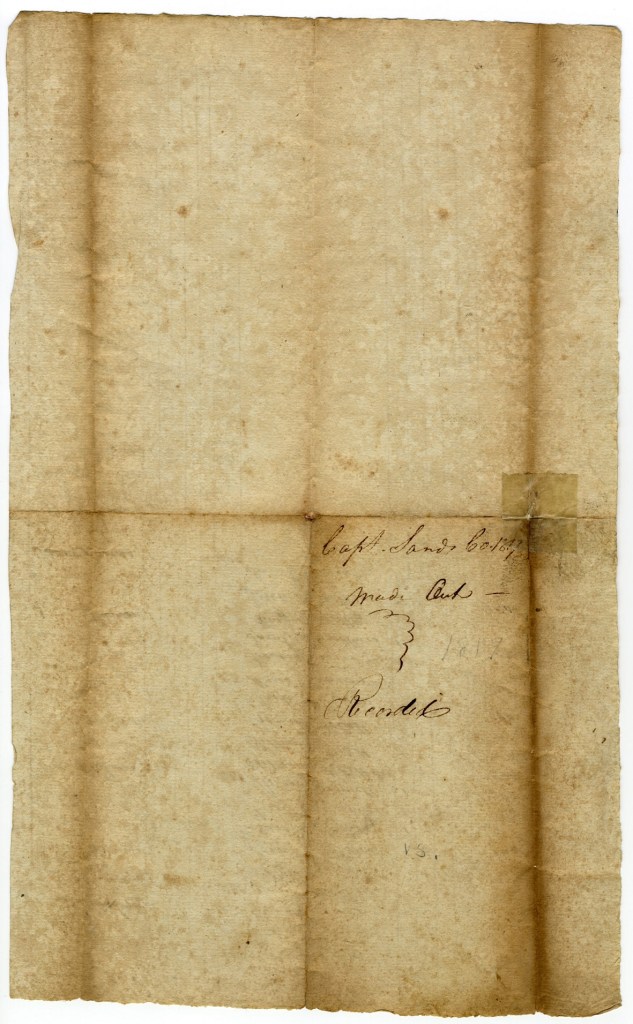 Capt. Sands Co 1817
Made Out —
1817
Recorded